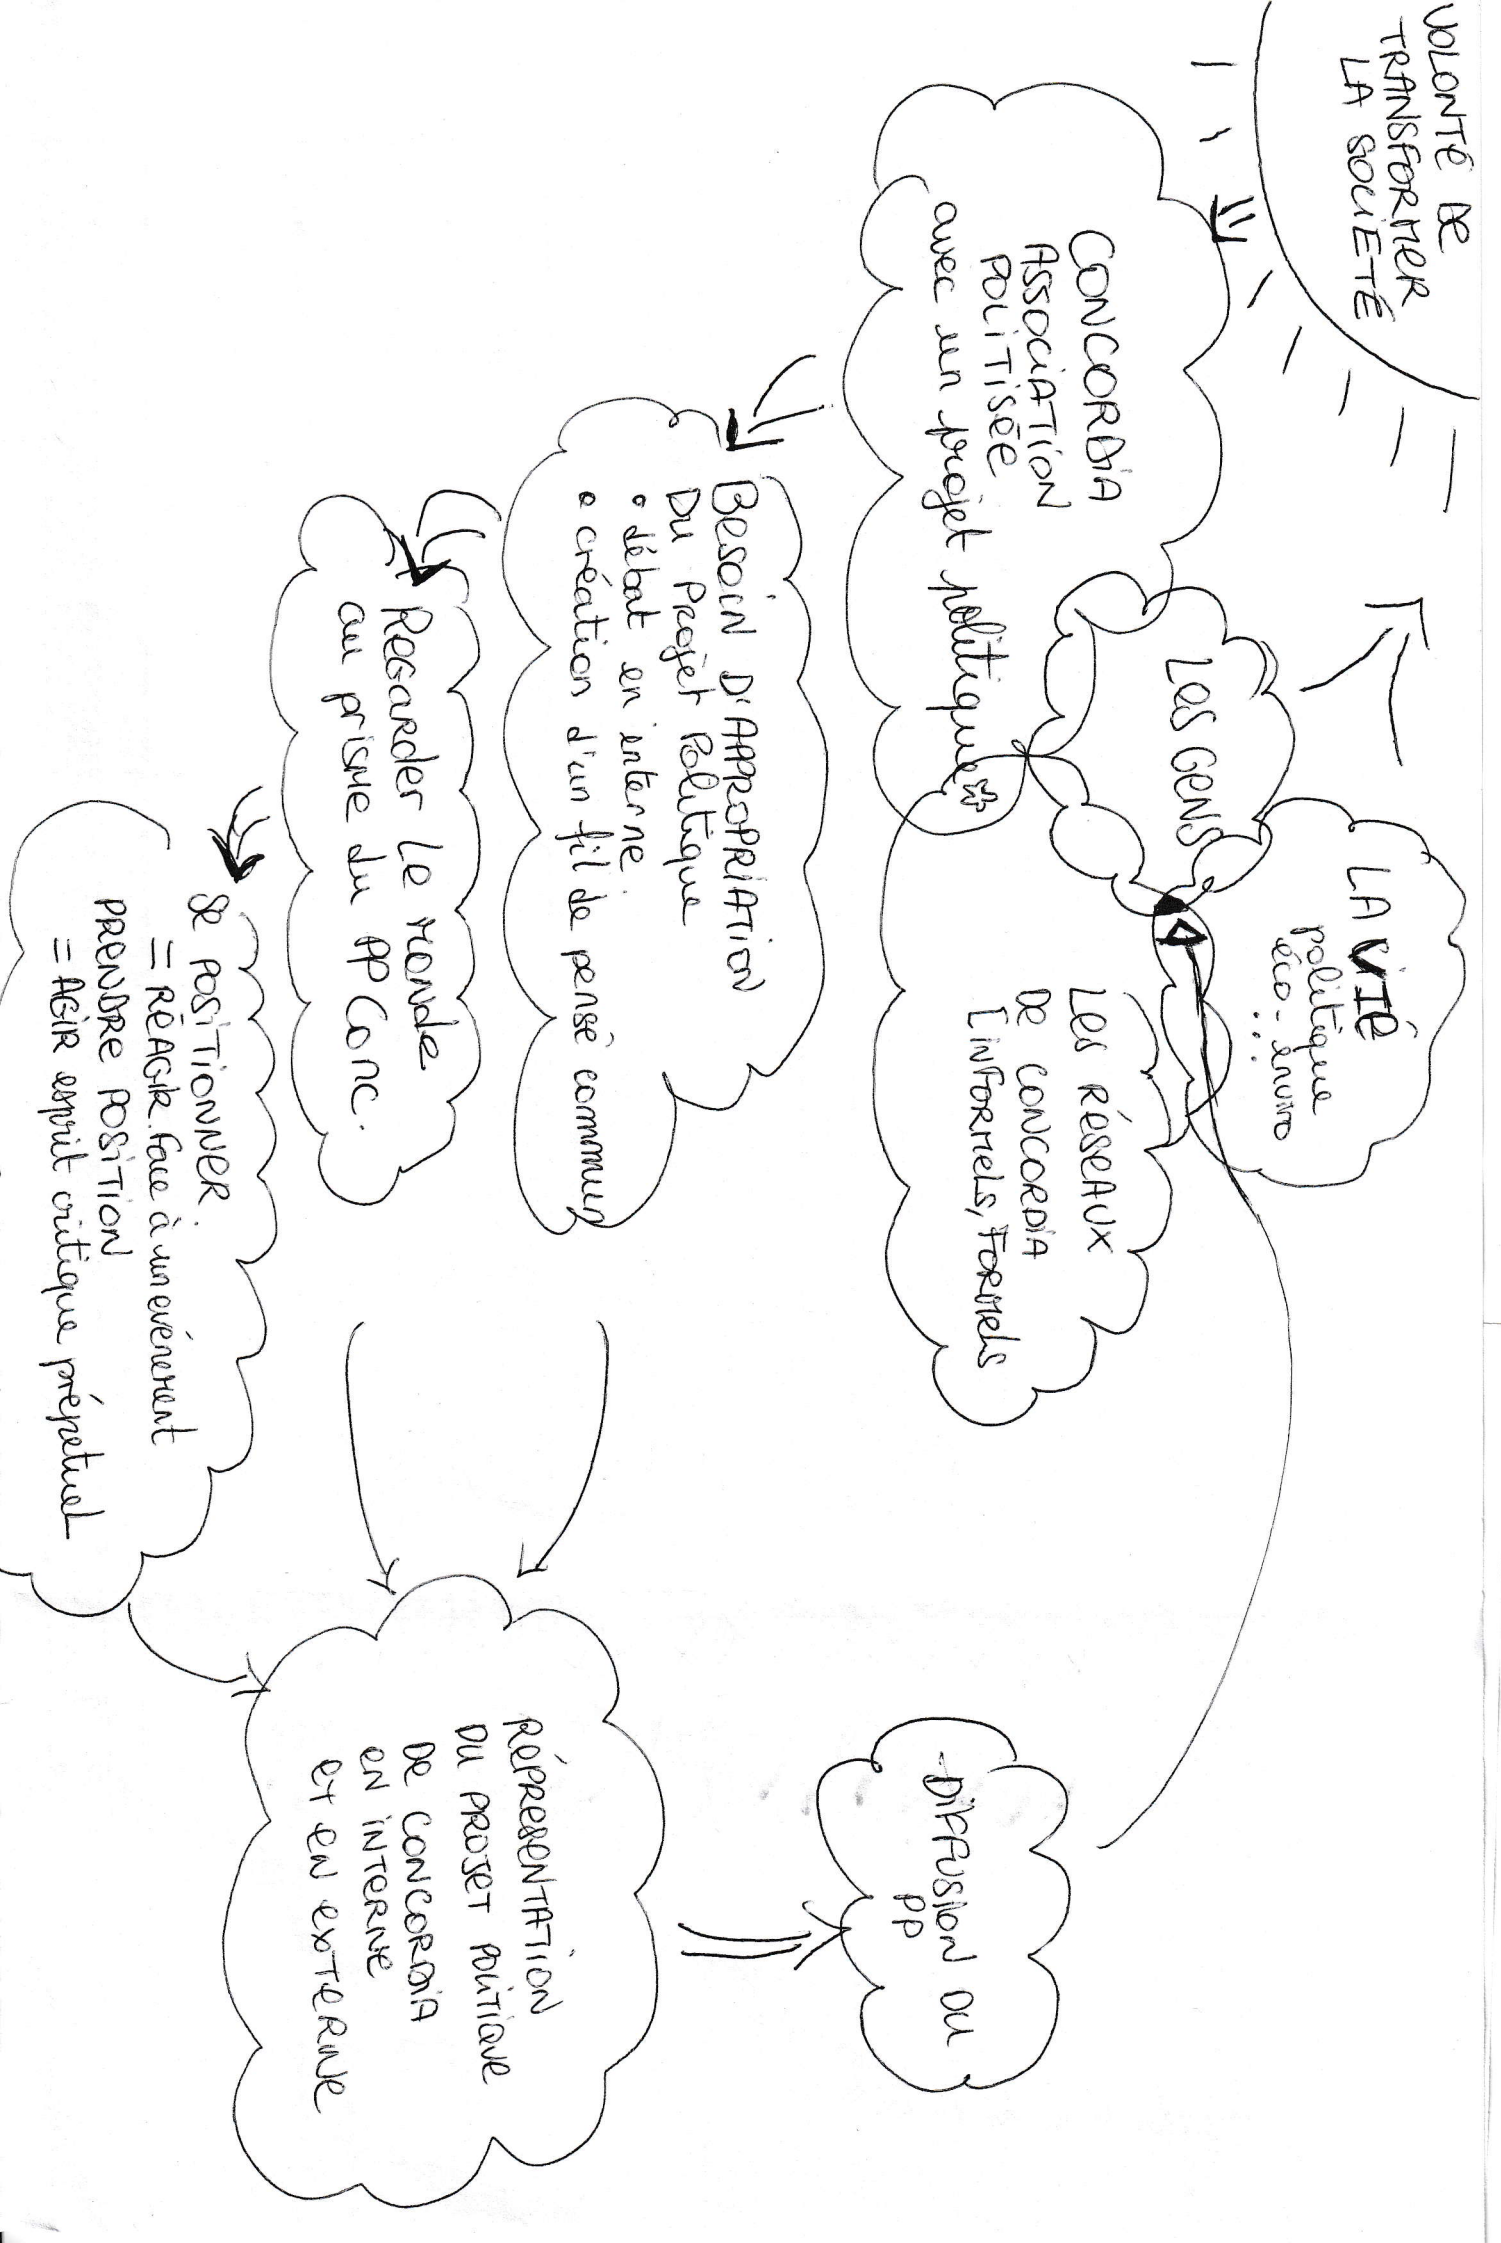 VOLONTÉ DE
TRANSFORMER
LA SOCIÉTÉ
CONCORDIA
ASSOCIATION
POLITISÉE
avec un projet politique
LES GENS
LA VIE
politique
éco - enviro
...
LES RÉSEAUX
DE CONCORDIA
[INFORMELS, FORMELS
BESOIN D'APPROPRIATION
DU PROJET POLITIQUE
• débat en interne
• création d'un fil de pensé commun
REGARDER LE MONDE
au prisme du PP CONC.
SE POSITIONNER
= RÉAGIR face à un evénement
PRENDRE POSITION
= AGIR esprit critique prépetuel
RÉPRESENTATION
DU PROJET POLITIQUE
DE CONCORDIA
EN INTERNE
ET EN EXTERNE
DIFFUSION DU
PP